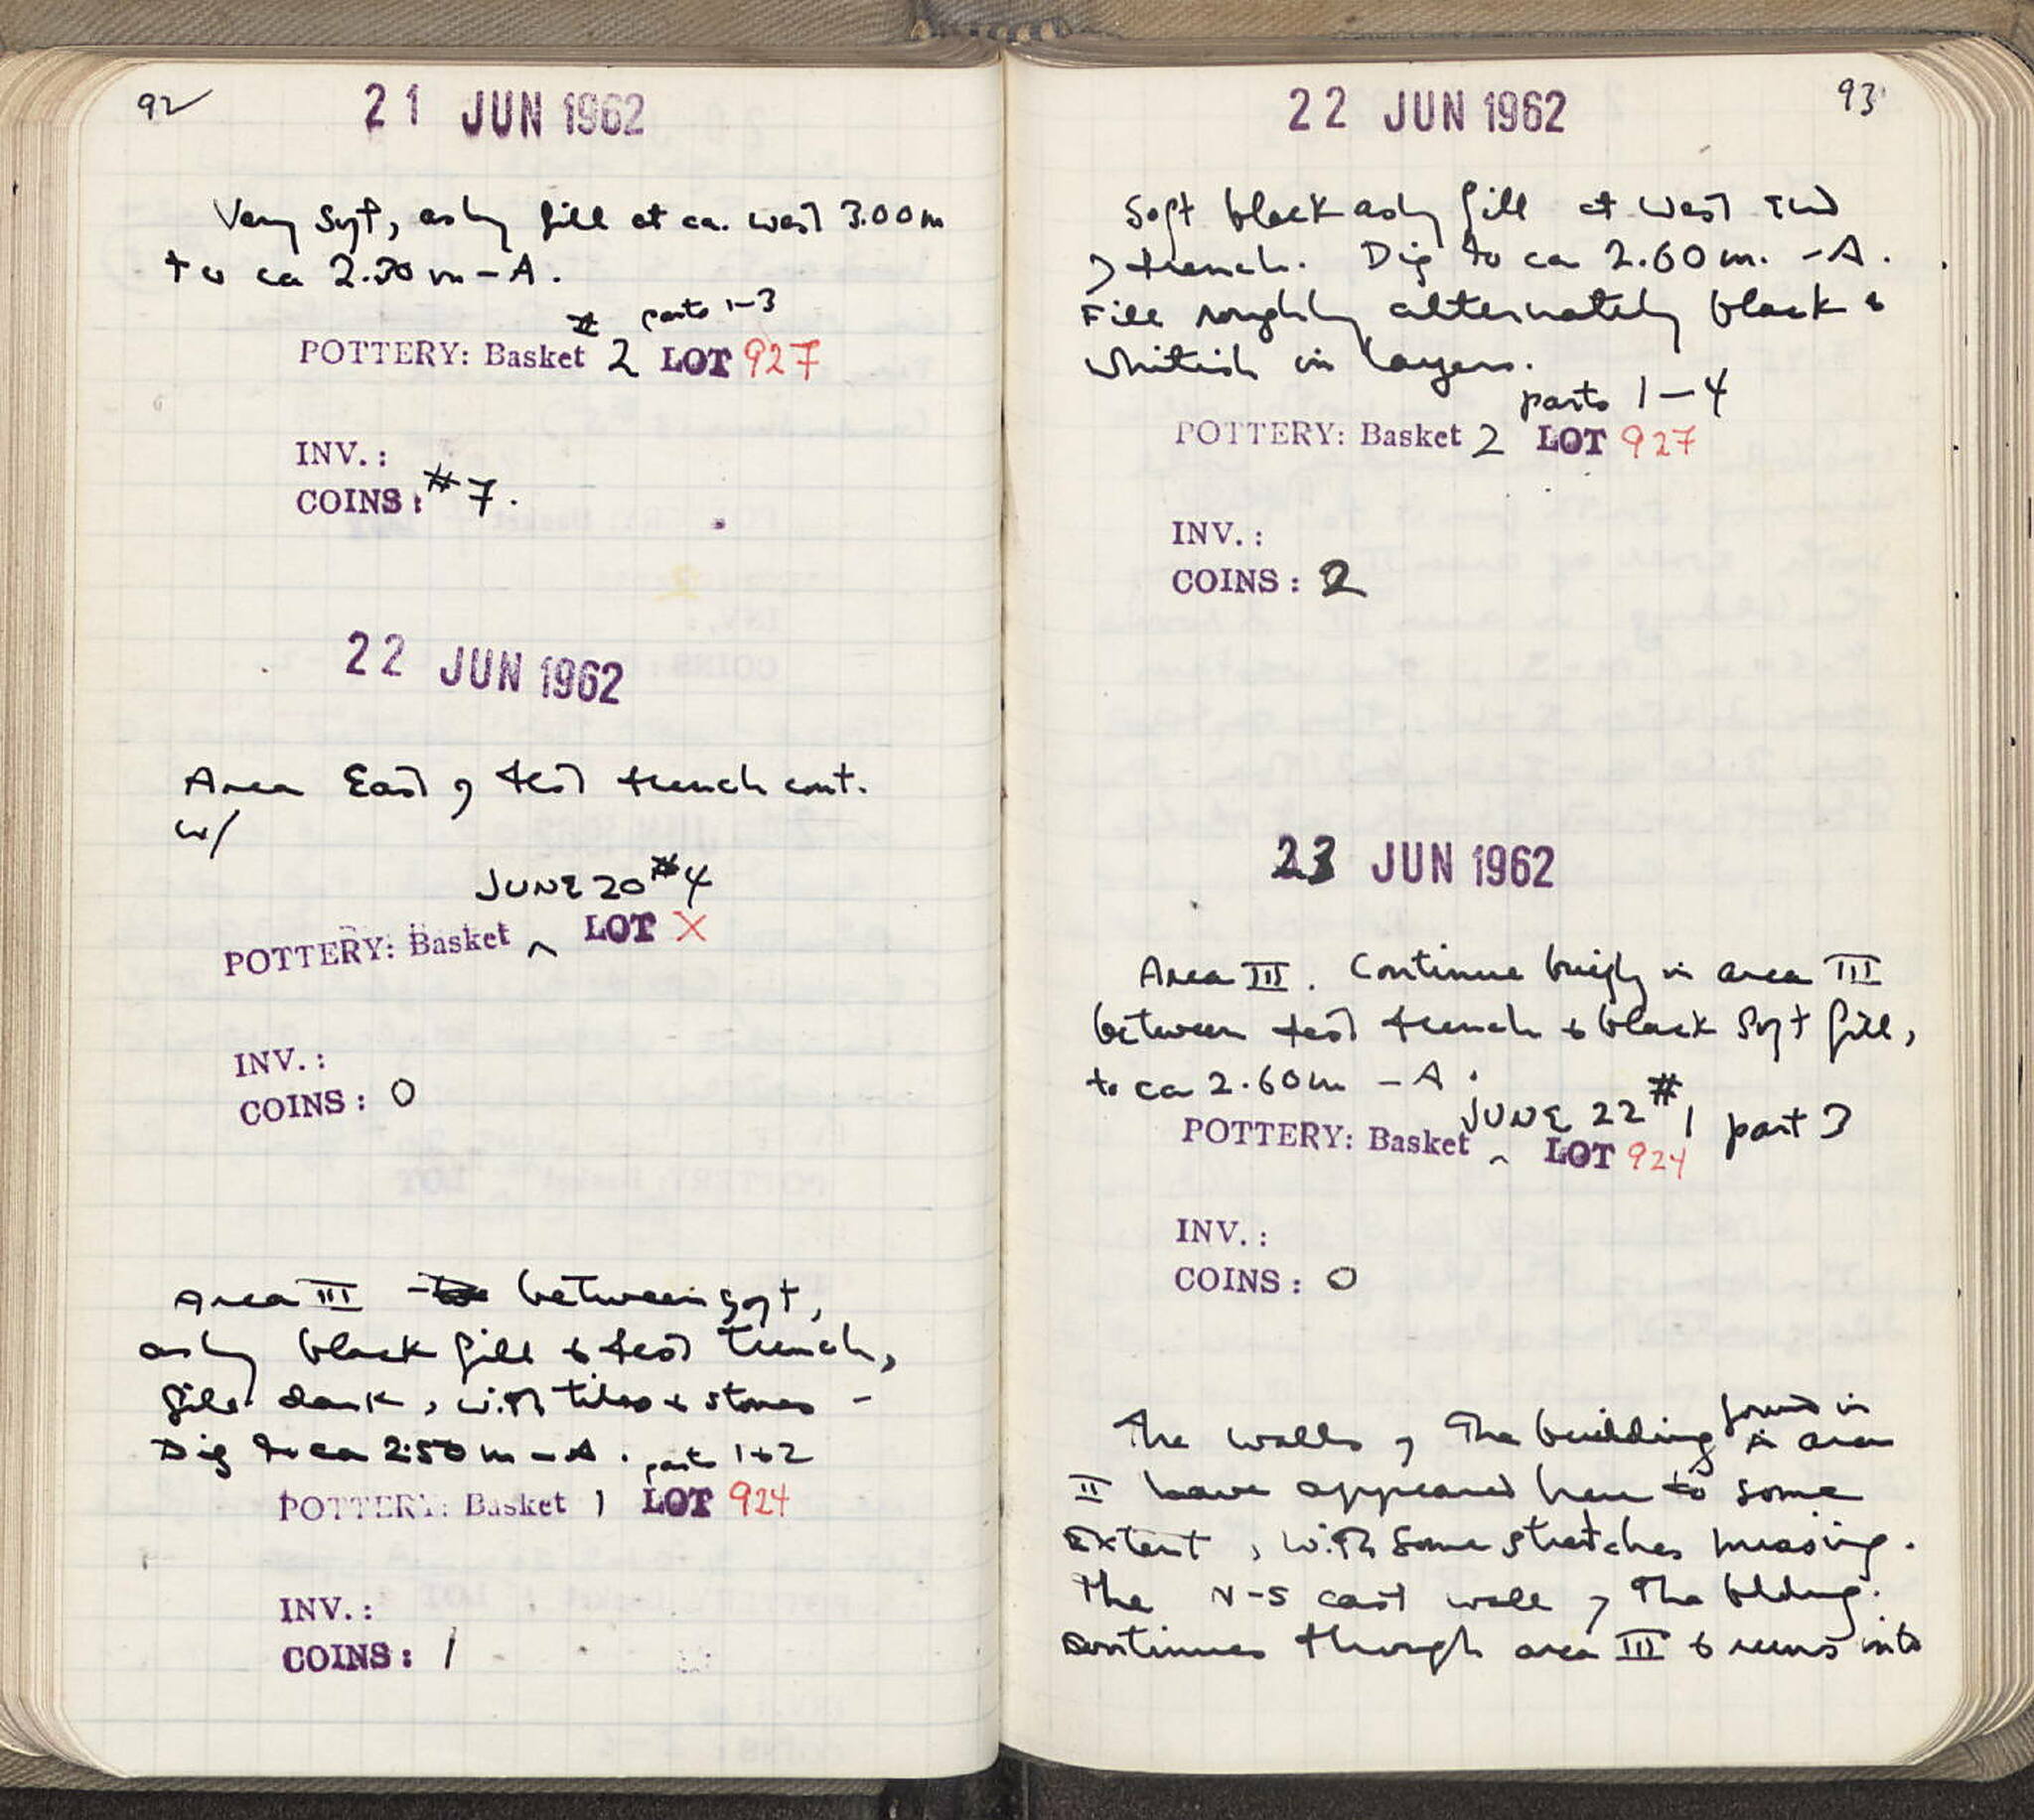 92
21 JUN 1962
Very soft, ashy fill at ca. west 3.00m
to ca 2.30 m - A.
# parts 1-3
POTTERY: Basket 2 LOT 927
INV. :
COINS : #7.
22 JUN 1962
Area East of test trench cont.
w/
JUNE 20 #4
POTTERY: Basket ^ LOT X
INV. :
COINS : 0
Area III between soft,
ashy black fill & test trench,
fill dark, with tiles & stones -
Dig to ca 2.50 m - A. parts 1+2
POTTERY: Basket 1 LOT 924
INV. :
COINS : 1
93
22 JUN 1962
Soft black ashy fill at west end
of trench. Dig to ca 2.60 m. - A.
Fill roughly alternately black &
whitish in layers.
parts 1-4
POTTERY: Basket 2 LOT 927
INV. :
COINS : 2
23 JUN 1962
Area III. Continue briefly in area III
between test trench & black soft fill,
to ca 2.60m - A.
JUNE 22 #1 part 3
POTTERY: Basket ^ LOT 924
INV. :
COINS : 0
The walls of the building found in area
II have appeared here to some
extent, with some stretches missing.
The N-S east wall of the bldng.
continues through area III & runs into